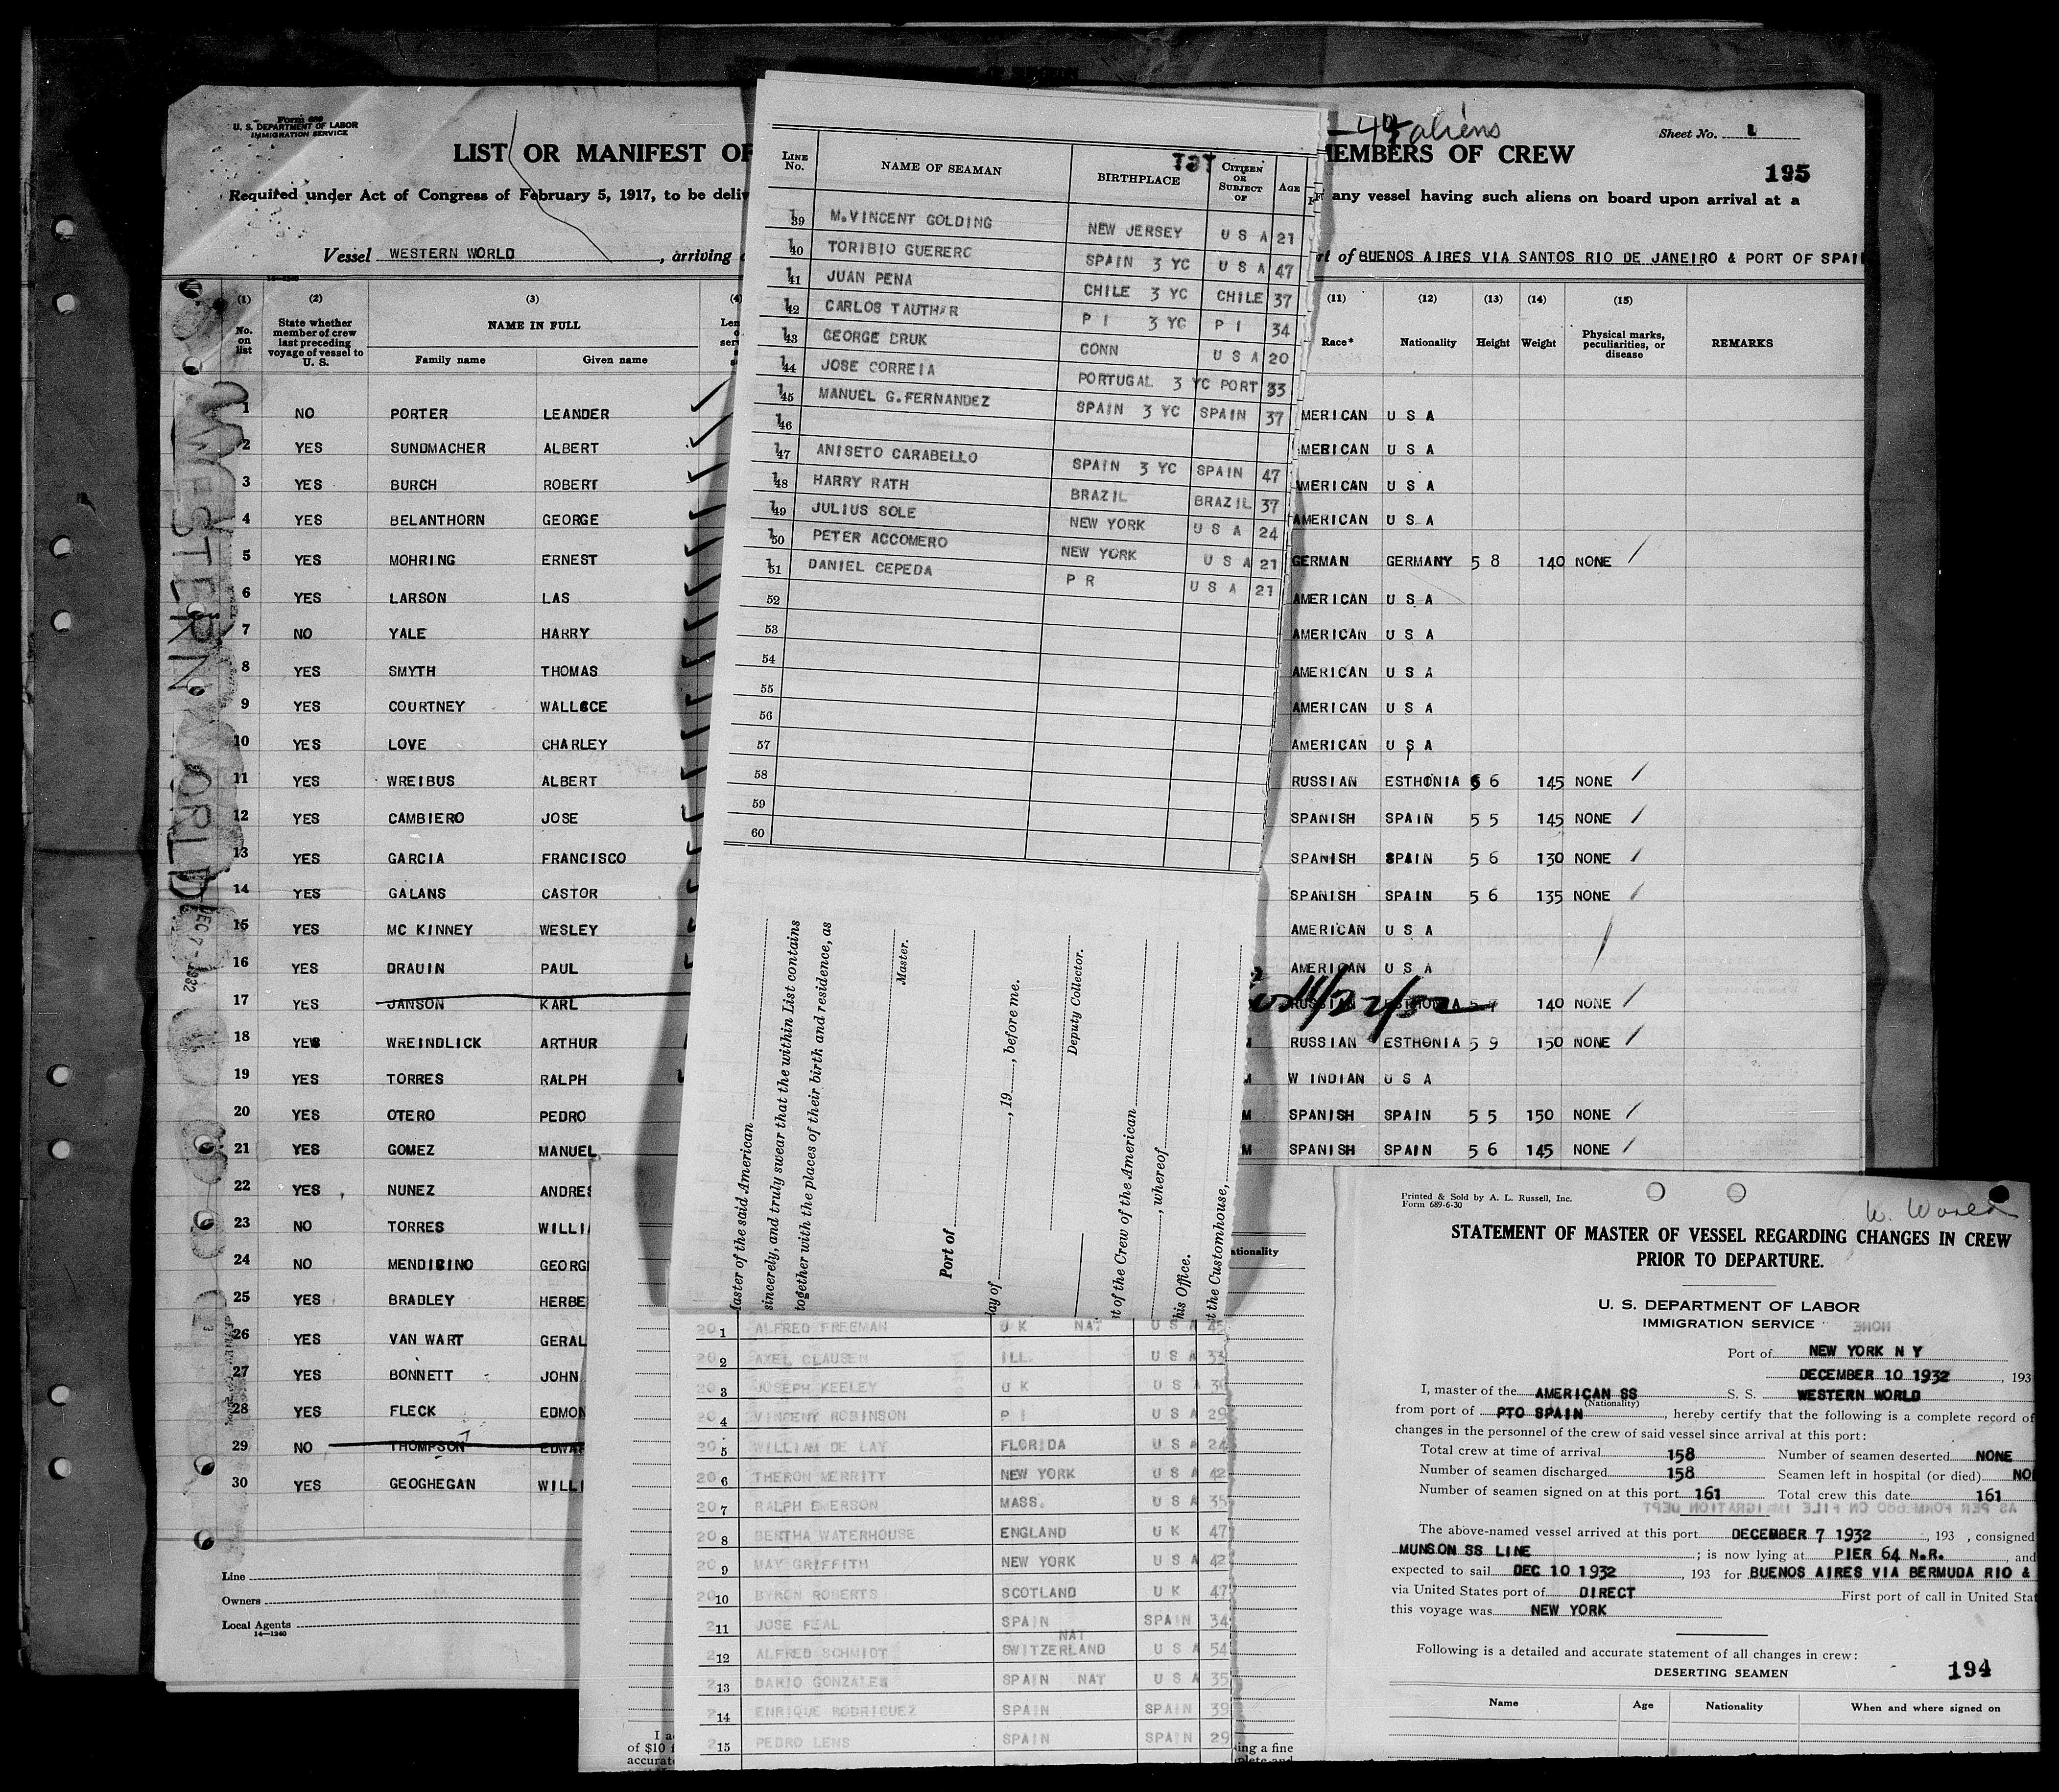 Form 689
U. S. DEPARTMENT OF LABOR
IMMIGRATION SERVICE
LIST OR MANIFEST OF
EMBERS OF CREW
44 aliens
Sheet No. 1
195
Required under Act of Congress of February 5, 1917, to be deliv
any vessel having such aliens on board upon arrival at a
Vessel WESTERN WORLD, arriving
rt of BUENOS AIRES VIA SANTOS RIO DE JANEIRO & PORT OF SPAIN
(1) (2) (3) (4)
No. on list
State whether member of crew last preceding voyage of vessel to U. S.
NAME IN FULL
Family name Given name
(11) (12) (13) (14) (15)
Race* Nationality Height Weight Physical marks, peculiarities, or disease REMARKS
WESTERN WORLD
DEC 7 - 1932
1 NO PORTER LEANDER MERICAN U S A
2 YES SUNDMACHER ALBERT MERICAN U S A
3 YES BURCH ROBERT AMERICAN U S A
4 YES BELANTHORN GEORGE AMERICAN U S A
5 YES MOHRING ERNEST GERMAN GERMANY 5 8 140 NONE
6 YES LARSON LAS AMERICAN U S A
7 NO YALE HARRY AMERICAN U S A
8 YES SMYTH THOMAS AMERICAN U S A
9 YES COURTNEY WALLCCE AMERICAN U S A
10 YES LOVE CHARLEY AMERICAN U S A
11 YES WREIBUS ALBERT RUSSIAN ESTHONIA 6 6 145 NONE
12 YES CAMBIERO JOSE SPANISH SPAIN 5 5 145 NONE
13 YES GARCIA FRANCISCO SPANISH SPAIN 5 6 130 NONE
14 YES GALANS CASTOR SPANISH SPAIN 5 6 135 NONE
15 YES MC KINNEY WESLEY AMERICAN U S A
16 YES DRAUIN PAUL AMERICAN U S A
17 YES JANSON KARL 11/22/32 RUSSIAN ESTHONIA 140 NONE
18 YES WREINDLICK ARTHUR RUSSIAN ESTHONIA 5 9 150 NONE
19 YES TORRES RALPH M W INDIAN U S A
20 YES OTERO PEDRO M SPANISH SPAIN 5 5 150 NONE
21 YES GOMEZ MANUEL M SPANISH SPAIN 5 6 145 NONE
22 YES NUNEZ ANDRES
23 NO TORRES WILLI
24 NO MENDICINO GEORG
25 YES BRADLEY HERBE
26 YES VAN WART GERAL
27 YES BONNETT JOHN
28 YES FLECK EDMON
29 NO THOMPSON EDWAR
30 YES GEOGHEGAN WILLI
Line
Owners
Local Agents
14—1240
LINE No. NAME OF SEAMAN BIRTHPLACE CITIZEN OR SUBJECT OF AGE
139 M.VINCENT GOLDING NEW JERSEY U S A 21
140 TORIBIO GUERERC SPAIN 3 YC U S A 47
141 JUAN PENA CHILE 3 YC CHILE 37
142 CARLOS TAUTHAR P I 3 YC P I 34
143 GEORGE DRUK CONN U S A 20
144 JOSE CORREIA PORTUGAL 3 YC PORT 33
145 MANUEL G.FERNANDEZ SPAIN 3 YC SPAIN 37
146
147 ANISETO CARABELLO SPAIN 3 YC SPAIN 47
148 HARRY RATH BRAZIL BRAZIL 37
149 JULIUS SOLE NEW YORK U S A 24
150 PETER ACCOMERO NEW YORK U S A 21
151 DANIEL CEPEDA P R U S A 21
52
53
54
55
56
57
58
59
60
Master of the said American
sincerely, and truly swear that the within List contains
together with the places of their birth and residence, as
Master.
Port of
day of , 19 , before me.
Deputy Collector.
t of the Crew of the American
, whereof
his Office.
t the Customhouse,
ationality
20 1 ALFRED FREEMAN U K NAT U S A 45
20 2 AXEL CLAUSEN ILL. U S A 33
20 3 JOSEPH KEELEY U K U S A
20 4 VINCENT ROBINSON P I U S A 29
20 5 WILLIAM DE LAY FLORIDA U S A 24
20 6 THERON MERRITT NEW YORK U S A 42
20 7 RALPH EMERSON MASS. U S A 35
20 8 BERTHA WATERHOUSE ENGLAND U K 47
20 9 MAY GRIFFITH NEW YORK U S A 42
20 10 BYRON ROBERTS SCOTLAND U K 47
2 11 JOSE FEAL SPAIN SPAIN 34
2 12 ALFRED SCHMIDT SWITZERLAND NAT U S A 54
2 13 DARIO GONZALES SPAIN NAT U S A 35
2 14 ENRIQUE RODRIGUEZ SPAIN SPAIN 39
2 15 PEDRO LENS SPAIN SPAIN 29
I a
of $10 f
accurat
ing a fine
plete and
Printed & Sold by A. L. Russell, Inc.
Form 689-6-30
W. World
STATEMENT OF MASTER OF VESSEL REGARDING CHANGES IN CREW
PRIOR TO DEPARTURE.
U. S. DEPARTMENT OF LABOR
IMMIGRATION SERVICE
Port of NEW YORK N Y
DECEMBER 10 1932, 193
I, master of the AMERICAN SS S. S. WESTERN WORLD
(Nationality)
from port of PTO SPAIN, hereby certify that the following is a complete record of
changes in the personnel of the crew of said vessel since arrival at this port:
Total crew at time of arrival 158 Number of seamen deserted NONE
Number of seamen discharged 158 Seamen left in hospital (or died) NO
Number of seamen signed on at this port 161 Total crew this date 161
AS PER FORM 680 ON FILE IMIGRATION DEPT
The above-named vessel arrived at this port DECEMBER 7 1932, 193 , consigned
MUNSON SS LINE; is now lying at PIER 64 N.R., and
expected to sail DEC 10 1932, 193 for BUENOS AIRES VIA BERMUDA RIO &
via United States port of DIRECT First port of call in United Stat
this voyage was NEW YORK
Following is a detailed and accurate statement of all changes in crew:
DESERTING SEAMEN
194
Name Age Nationality When and where signed on